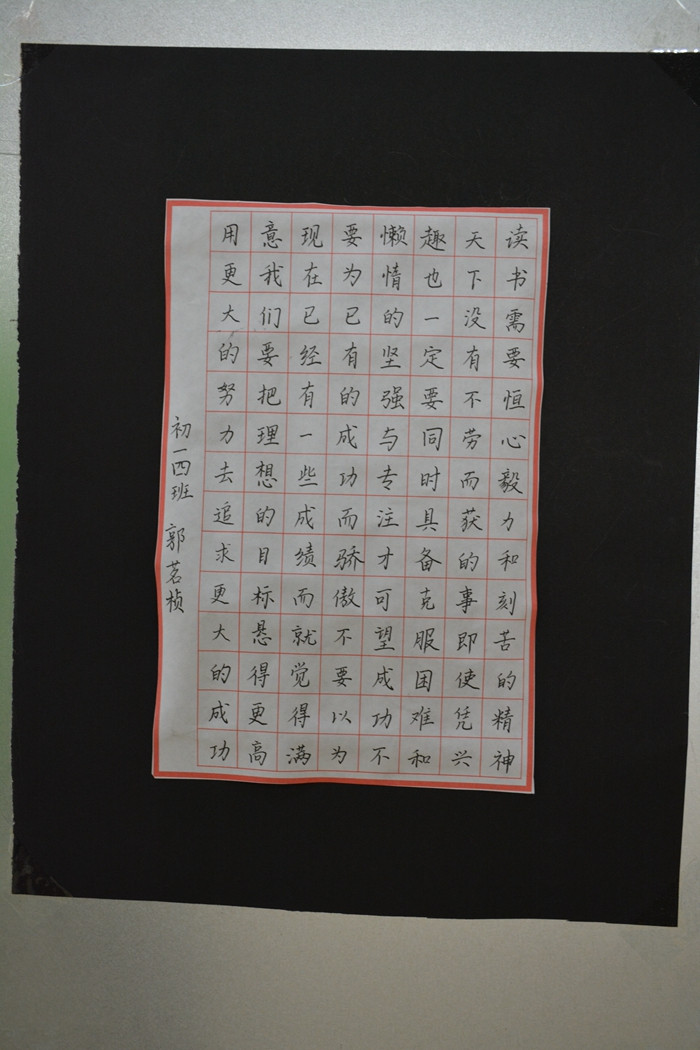 读书需要恒心毅力和刻苦的精神
天下没有不劳而获的事即使凭兴
趣也一定要同时具备克服困难和
懒情的坚强与专注才可望成功不
要为已有的成功而骄傲不要以为
现在已经有一些成绩而就觉得满
意我们要把理想的目标悬得更高
用更大的努力去追求更大的成功
初一四班 郭茗桢